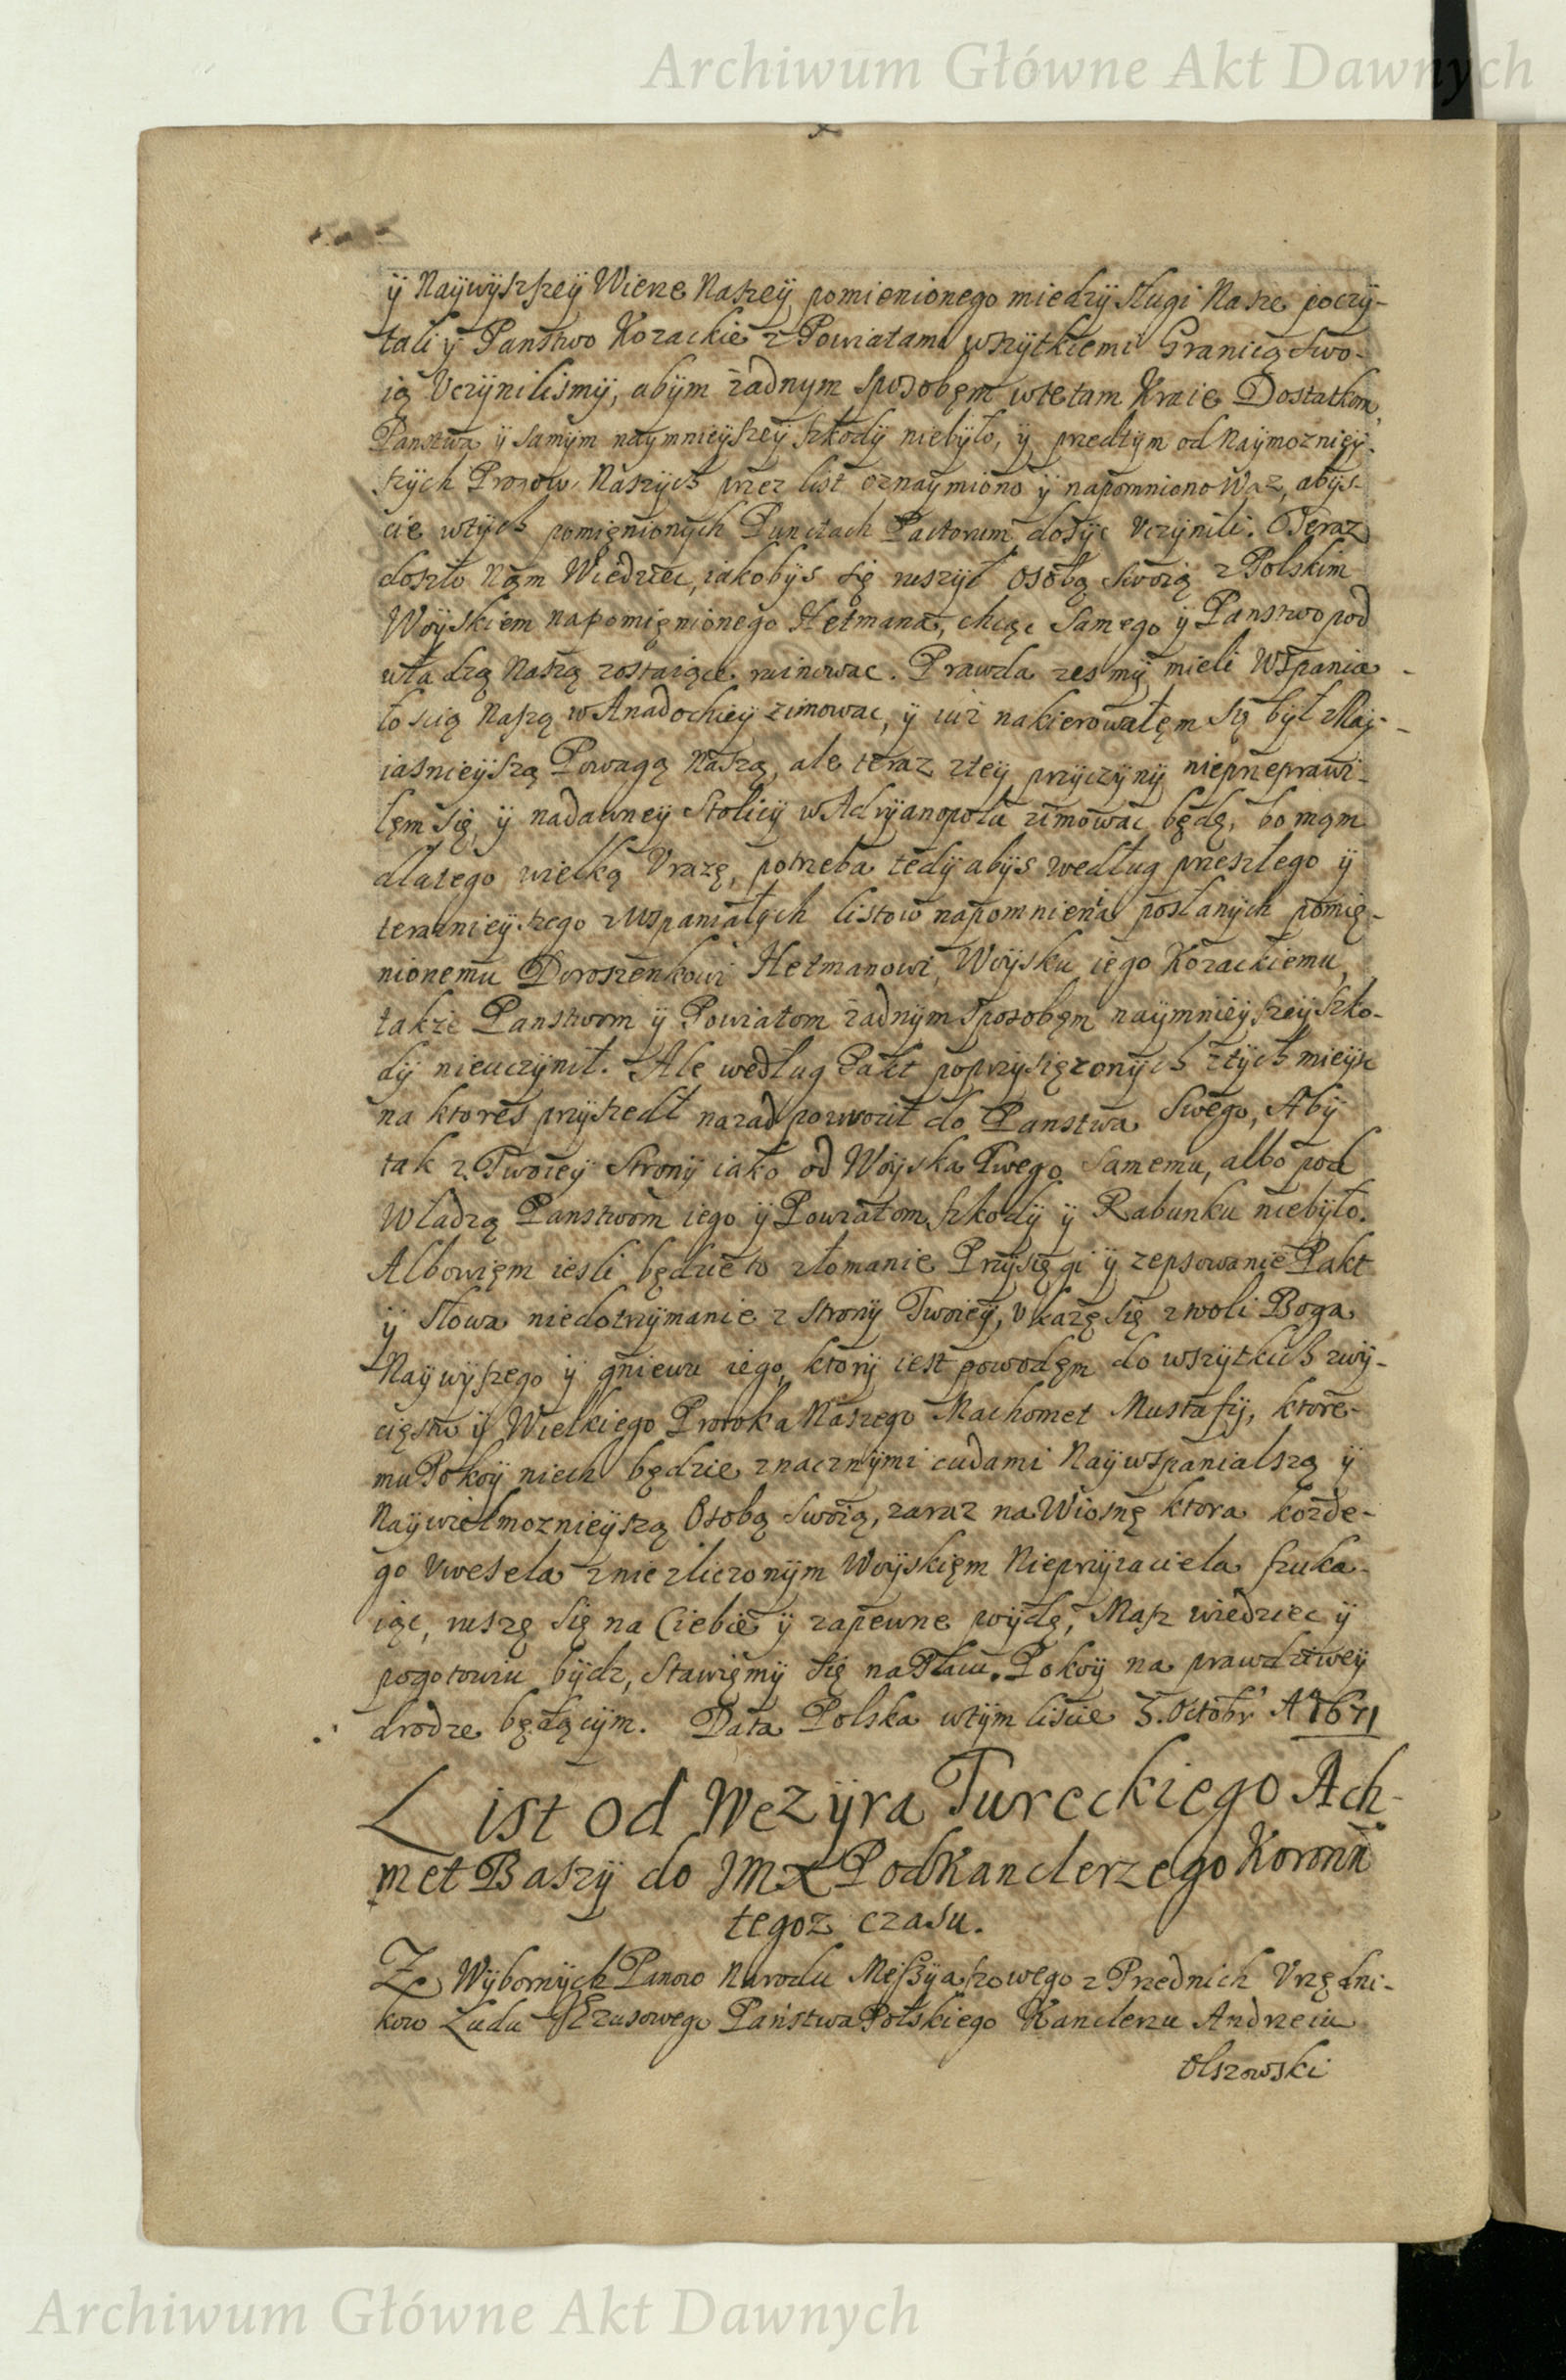 Archiwum Główne Akt Dawnych
ÿ Naÿwÿszszeÿ Wierze Naszeÿ pomienionego miedzÿ sługi Nasze poczÿ-
tali ÿ Panstwo Kozackie z Powiatami wszÿtkiemi Granicą Swo-
ią Vczÿnilismÿ, abÿm żadnym sposobęm wte tam Kraie Dostatkom,
Panstwa ÿ samÿm naÿmnieÿszeÿ szkodÿ niebÿło, ÿ przedtÿm od Naÿmoznieÿ-
szÿch Przodow Naszÿch przez list oznaÿmiono ÿ napomniono Waz, abÿs-
cie wtÿch pomięnionÿch Punctach Pactorum dosÿc Vczÿnili. Teraz
doszło Nąm Wiedziec, iakobÿs się ruszÿł osobą Swoią z Polskim
Woÿskiem na pomięnionego Hetmana, chcąc Samego ÿ Panstwo pod
władzą Naszą zostaiące ruinowac. Prawda zesmÿ mieli Wspania-
łoscią Naszą w Anadochieÿ zimowac, ÿ iuż nakierowałęm się bÿł z Naÿ-
iasnieÿszą Powagą Naszą, ale teraz zteÿ przÿczÿnÿ nieprzeprawi-
lęm się, ÿ nadawneÿ Stolicÿ w Adrÿanopolu zimowac będę, bo mąm
dlatego wielką Vrazę, potrzeba tedÿ abÿs według przeszłego ÿ
teraznieÿszego z Wspaniałÿch listow napomnienia posłanÿch pomię-
nionemu Doroszenkowi Hetmanowi, Woÿsku iego Kozackiemu,
także Panstwom ÿ Powiatom żadnÿm sposobęm naÿmnieÿszeÿ szko-
dÿ nieuczÿnił. Ale według Pakt poprzÿsięzonÿch ztÿch mieÿsc
na ktores przÿszedł nazad powrocił do Panstwa Swego, Abÿ
tak z Twoieÿ Stronÿ iako od Woÿska Twego Samemu, albo pod
Władzą Panstwom iego ÿ Powiatom szkodÿ ÿ Rabunku niebÿło.
Albowięm iesli będzie to złomanie Przÿsięgi ÿ zepsowanie Pakt
ÿ Słowa niedotrzÿmanie z stronÿ Twoieÿ, Vkażę się z woli Boga
Naÿwÿszego ÿ gniewu iego, ktorÿ iest powodęm do wszÿtkich zwÿ-
cięstw ÿ Wielkiego Proroka Naszego Machomet Mustafÿ, ktore-
mu Pokoÿ niech będzie znacznÿmi cudami Naÿwspanialszą ÿ
Naÿwielmoznieÿszą Osobą Swoią, zaraz na Wiosnę ktora kożde-
go Vwesela z niezliczonÿm Woÿskięm Nieprzÿiaciela szuka-
iąc, ruszę się na Ciebie ÿ zapewne poÿdę, Masz wiedziec ÿ
pogotowiu bÿdz, Stawięmÿ się na Placu. Pokoÿ na prawdziweÿ
drodze będącÿm. Data Polska wtÿm liscie 5. Octobr. Aº 1671
List od Wezÿra Tureckiego Ach-
met Baszÿ do JMX Podkanclerzego Koronn
tegoz czasu.
Z Wÿbornÿch Panow Narodu Messÿaszowego z Przednich Vrzędni-
kow Ludu JEzusowego Państwa Polskiego Kanclerzu Andrzeiu
Olszowski
Archiwum Główne Akt Dawnych